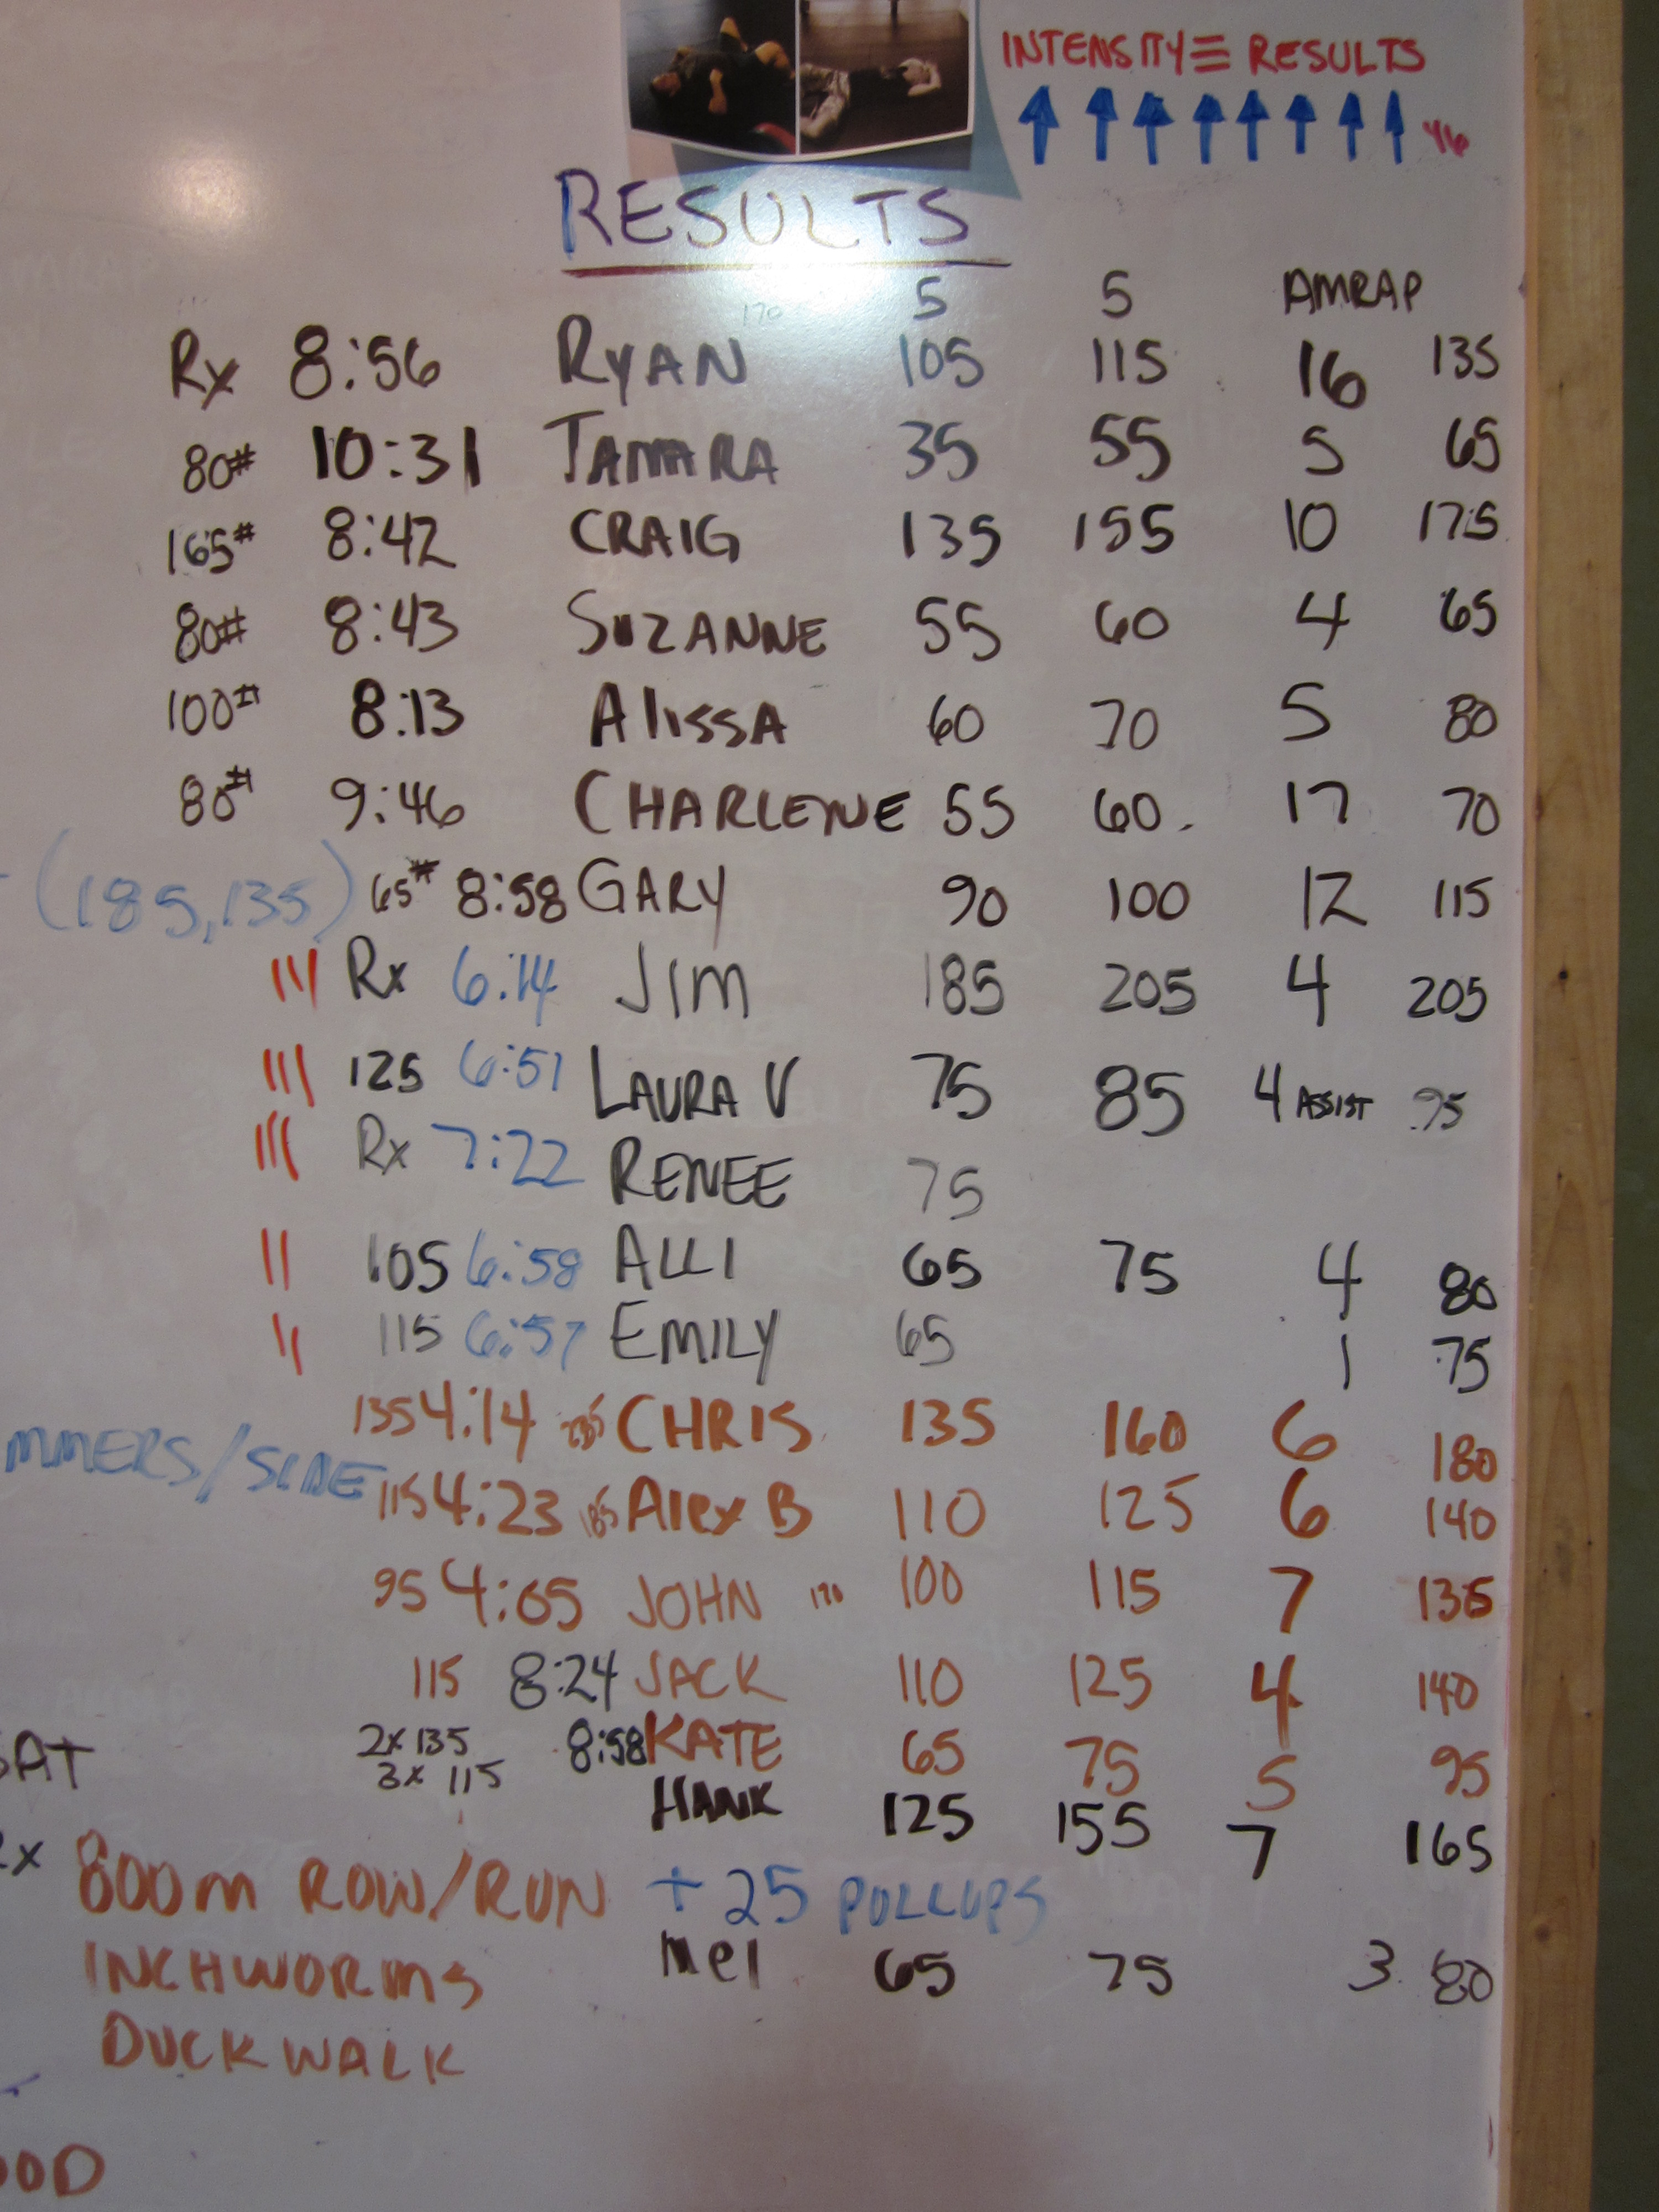 INTENSITY ≡ RESULTS
RESULTS
5 5 AMRAP
170
Rx 8:56 RYAN 105 115 16 135
80# 10:31 TAMARA 35 55 5 65
165# 8:42 CRAIG 135 155 10 175
80# 8:43 SUZANNE 55 60 4 65
100# 8:13 AlissA 60 70 5 80
80# 9:46 CHARLENE 55 60. 17 70
(185,135) 65# 8:58 GARY 90 100 12 115
III Rx 6:14 JIM 185 205 4 205
III 125 6:51 LAURA V 75 85 4 ASSIST 95
III Rx 7:22 RENEE 75
II 105 6:58 ALLI 65 75 4 80
II 115 6:57 EMILY 65 1 75
135 4:14 CHRIS 135 160 6 180
MMERS/SIDE 115 4:23 185 Alex B 110 125 6 140
95 4:05 JOHN 170 100 115 7 135
115 8:24 JACK 110 125 4 140
2x 135 8:58 KATE 65 75 5 95
3x 115
HANK 125 155 7 165
800m ROW/RUN + 25 PULLUPS
INCHWORMS Mel 65 75 3 80
DUCK WALK